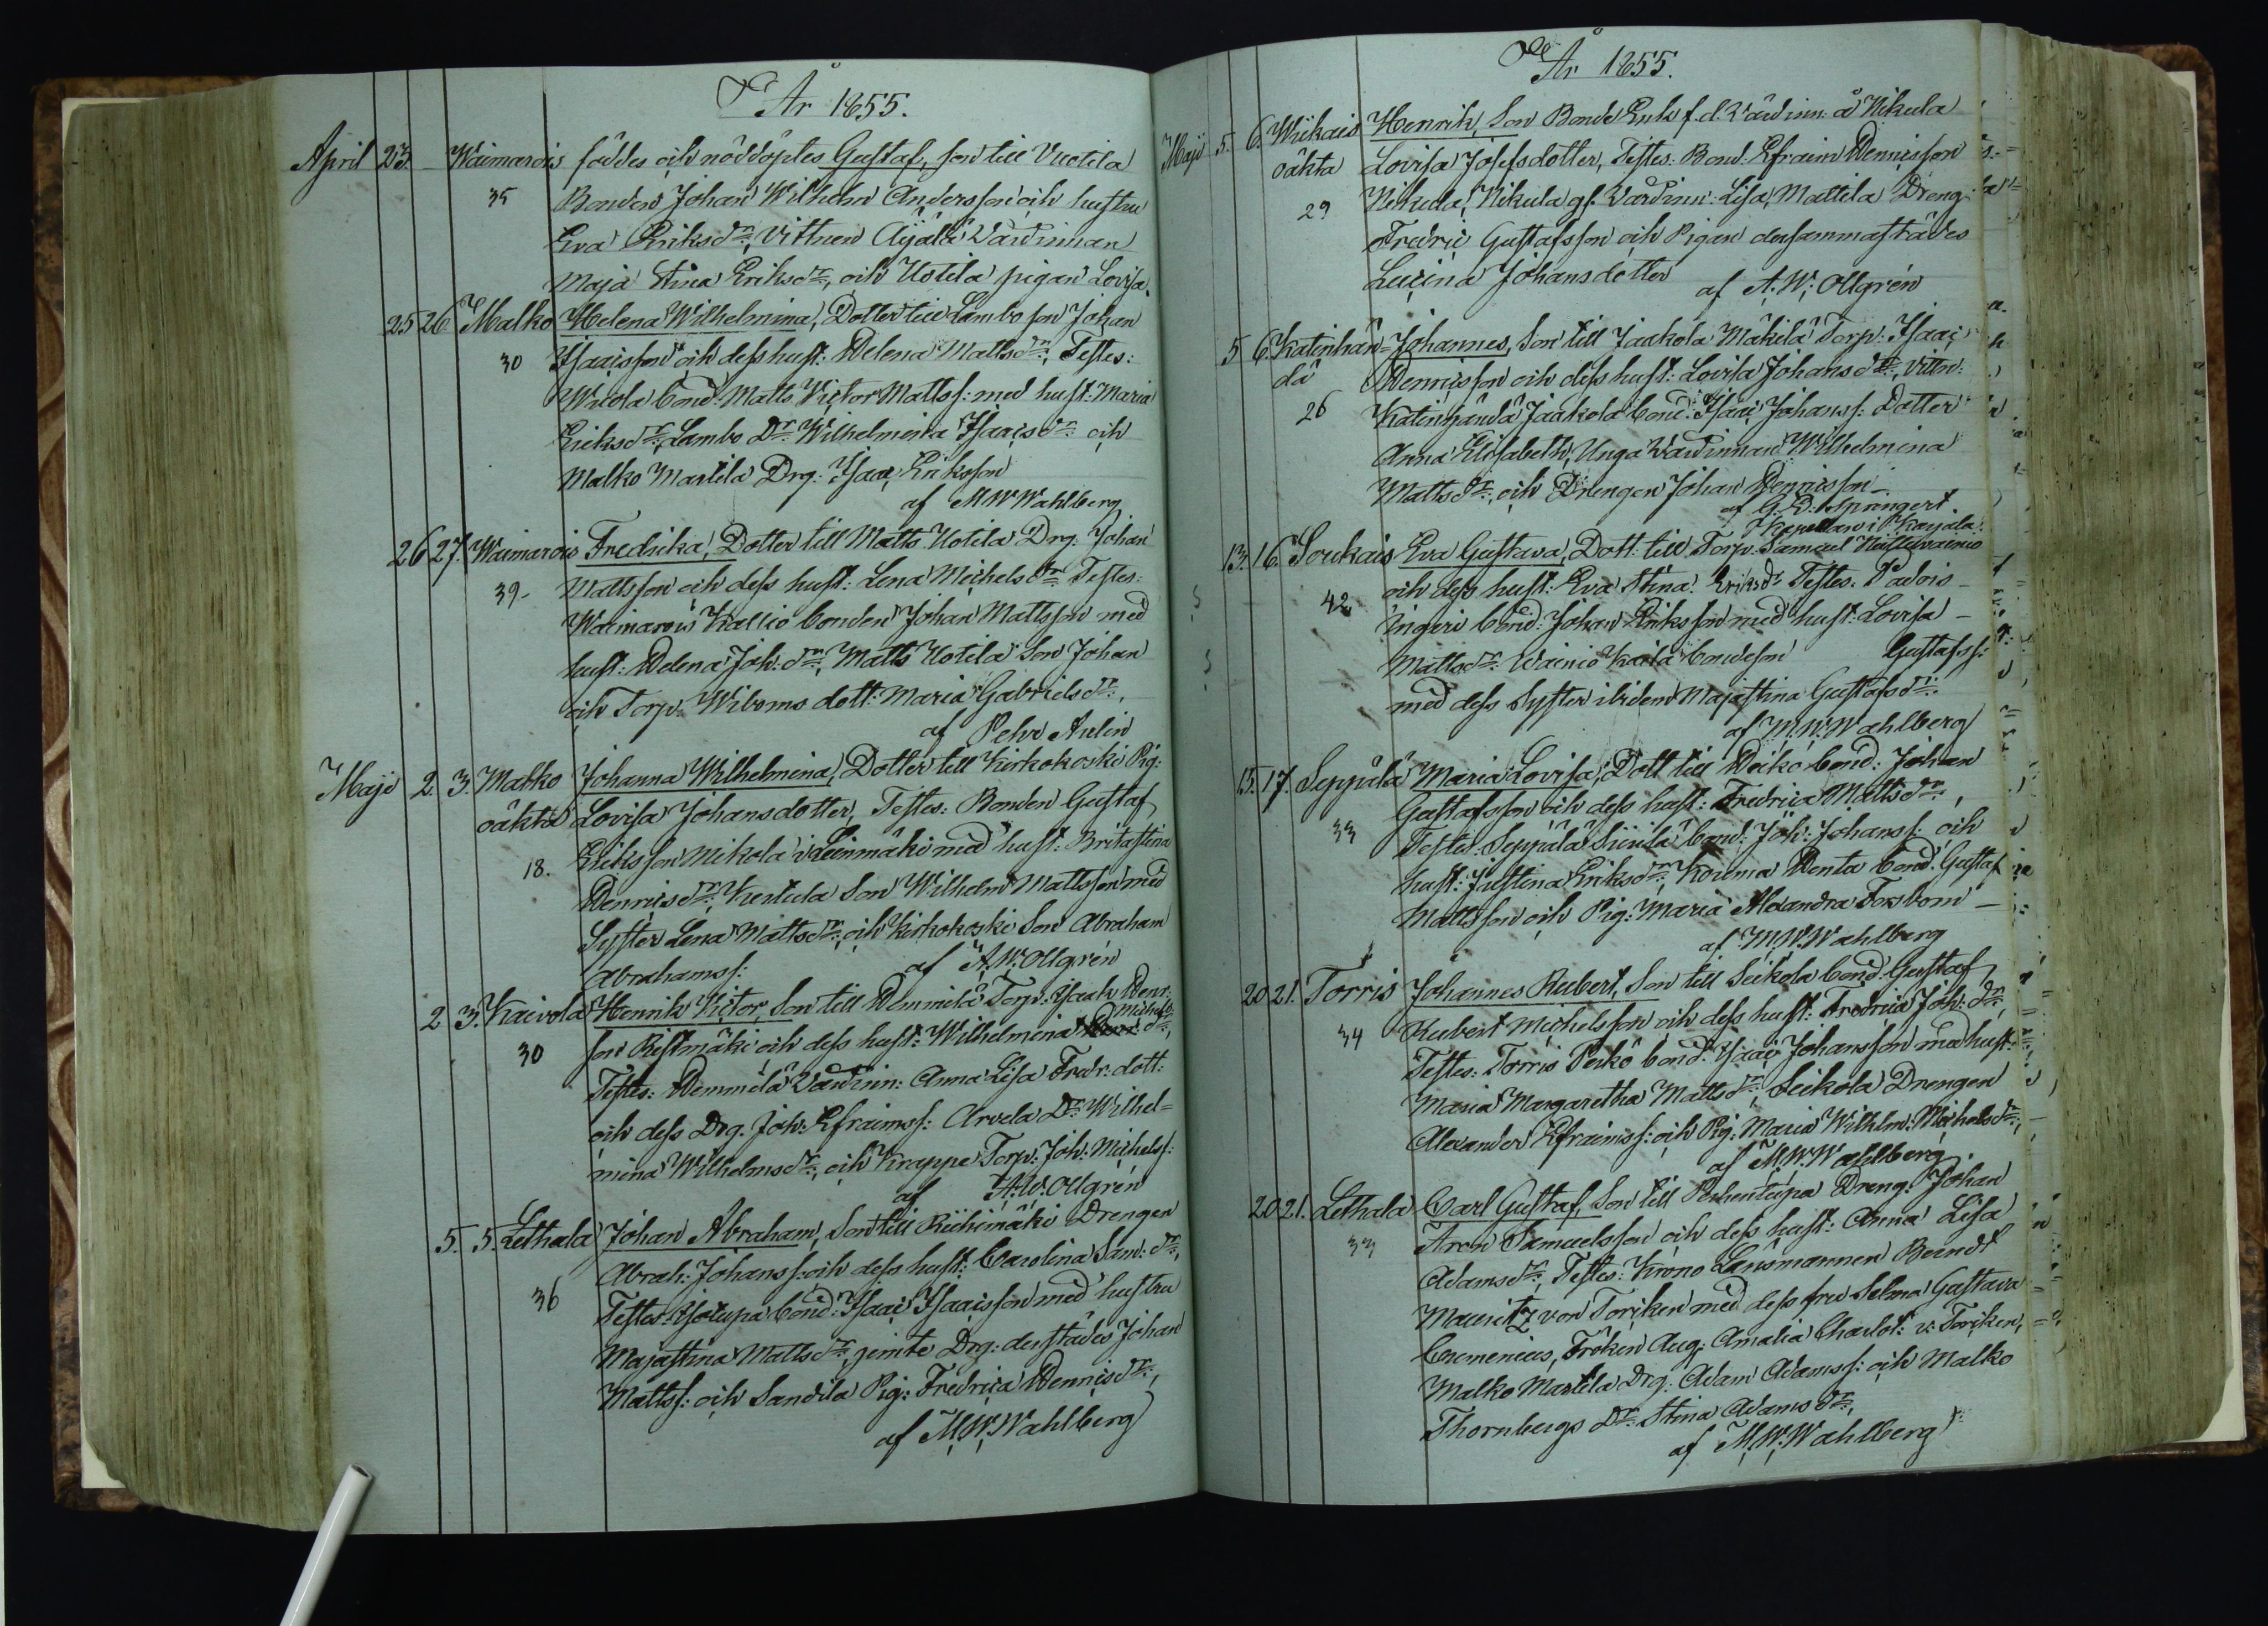 År 1855.
April 23. Waimarois föddes och nöddöptes Gustaf, son till Vuotila
35 Bonden Johan Wilhelm Andersson och hustru
Eva Eriksdr, Vittnen Äijälä Värdinnan
Maja Stina Eriksdr, och Uotila pigan Lovisa.
25 26 Malko Helena Wilhelmina, Dotter till Lambo son Johan
30 Isaacsson och dess hust: Helena Mattsdr, Testes:
bond: Matts Victor Mattss: med hust: Maria
Eriksdr, Lambo Dr: Wilhelmina Isaacsdr och
Malko Marttila Drg: Isaac Eriksson
af M.W. Wahlberg
26 27. Waimarois Fredrika, Dotter till Matts Uotila Drg. Johan
39- Mattsson och dess hust: Lena Michelsdr Testes:
Waimarois Kallio bonden Johan Mattsson med
hust: Helena Joh:dr, Matts Uotila Son Johan
och Torp: Wiboms dott: Maria Gabrielsdr,
af Pehr Aulin
Maji 2. 3. Malko Johanna Wilhelmina, Dotter till Kirkokoski Pig:
oäkta Lovisa Johansdotter, Testes: Bonden Gustaf
18. Eriksson Mikola i Leinmäki med hust: Britastina
Henricsdr, Kestila Son Wilhelm Mattsson med
Syster Lena Mattsdr, och Kirkokoski Son Abraham
Abrahamss: af A.W. Ollgrén
2 3. Kaivola Henrik Victor, Son till Hemmilä Torp: Isaak Henr:
Michels
30 son Ristmäki och dess hust: Wilhelmina dr,
Testes: Hemmilä Värdinn: Anna Lisa Fredr: dott:
och dess Drg. Joh: Efraimss: Arvela Dr Wilhel=
mina Wilhelmsdr, och Knappe Torp: Joh: Michelss:
af A.W. Ollgrén
5. 5. Lethala Johan Abraham, Son till Riihimäki Drengen
Abrah: Johanss: och dess hust: Carolina Sam:dr,
36 Testes: Isotupa bond: Isaac Isaacsson med hustru
Majastina Mattsdr, jemte Drg: derstädes Johan
Mattss: och Sandila Pig: Fredrica Henricsdr,
af M.W. Wahlberg
År 1855.
Maji 5. 6. Wiikais Henrik, Son Bonde Enk f.d. Värdinn: å Nikula
oäkta Lovisa Josefsdotter, Testes: Bond: Efraim Henricsson
29 Nikula, Nikula gl. Värdinn: Lisa, Mattila Dreng
Fredric Gustafsson och Pigan dersammastädes
Lucina Johansdotter af A.W. Ollgrén
5 6. Katinhän= Johannes, Son till Jaakola Mäkilä Torp: Isaac
dä Henricsson och dess hust: Lovisa Johansdr, Vittn:
26 Katinhändä Jaakola bond: Isaac Johanss: Dotter
Anna Elisabeth, Unga Värdinnan Wilhelmina
Mattsdr, och Drengen Johan Henricsson
af G.E. Springert
Kapellan i Karjala.
13. 16. Soukais Eva Gustava, Dott: till Torp: Samuel
42 och dess hust: Eva Stina Eriksdr Testes: Padois
Ingeri bond: Johan Eriksson med hust: Lovisa
Mattsdr. Wainio Kaila bondeson Gustafss:
med dess Syster ibidem Majastina Gustafsdr.
af M.W. Wahlberg
15. 17. Seppälä Maria Lovisa, Dott till Heikö bond: Johan
33 Gustafsson och dess hust: Fredrica Mattsdr,
Testes: Seppälä Siirilä bond: Joh: Johanss: och
hust: Justina Eriksdr, Kouma Henta bond: Gustaf
Mattsson och Pig: Maria Alexandra Forsbom
af M.W. Wahlberg
20 21. Torris Johannes Rubert, Son till Seikola bond: Gustaf
34 Rubert Michelsson och dess hust: Fredrica Joh:dr,
Testes: Torris Peikö bond: Isaac Johansson med hust:
Maria Margaretha Mattsdr, Seikola Drengen
Alexander Efraimss: och Pig: Maria Wilhelm: Michelsdr,
af M.W. Wahlberg.
20 21. Lethala Carl Gustaf, Son till Penkentupa Dreng: Johan
33 Aron Samuelsson och dess hust: Anna Lisa
Adamsdr, Testes: Krono Länsmannen Berndt
Mauritz von Torcken med dess fru Selma Gustava
Cumenius, Fröken Aug: Amalia Charlot: v. Torcken,
Malko Marttila Drg: Adam Adamss: och Malko
Thornbergs Dr Stina Adamsdr,
af M.W. Wahlberg